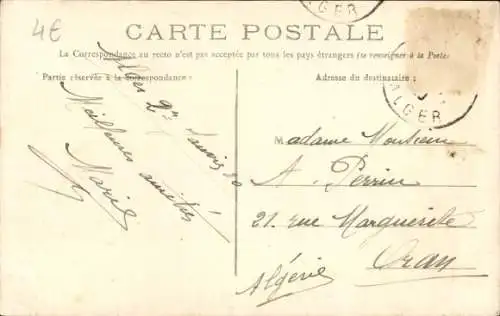 4€
CARTE POSTALE
La Correspondance au recto n'est pas acceptée par tous les pays étrangers (se renseigner à la Poste)
Partie réservée à la correspondance
Adresse du destinataire :
ALGER
ALGER
Alger 2
Meilleures amitiés
Marie
Madame
A. Perrin
21. rue Marguerite
Oran
Algérie